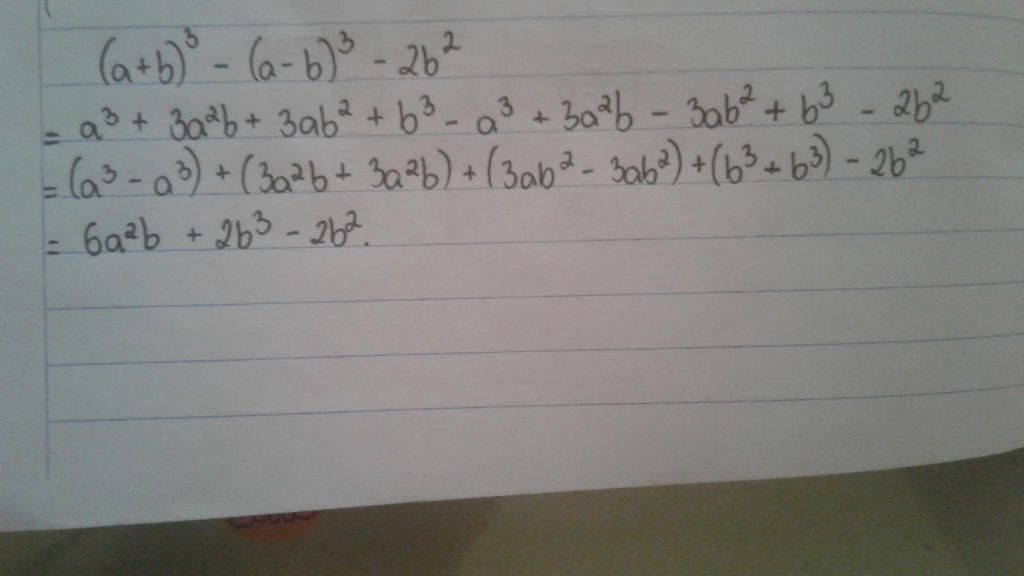 (a+b)³ - (a-b)³ - 2b²
= a³ + 3a²b + 3ab² + b³ - a³ + 3a²b - 3ab² + b³ - 2b²
= (a³ - a³) + (3a²b + 3a²b) + (3ab² - 3ab²) + (b³ + b³) - 2b²
= 6a²b + 2b³ - 2b².